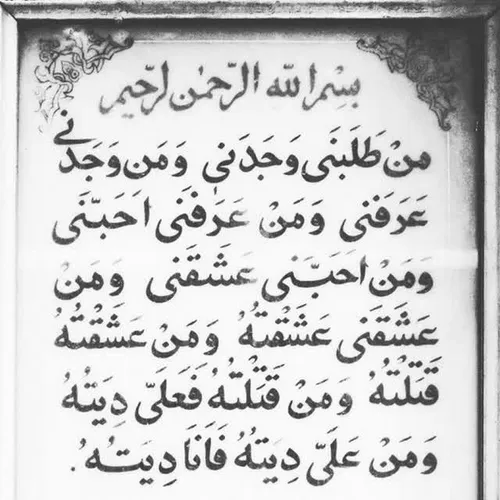 بسم الله الرحمن الرحیم
مَنْ طَلَبَنی وَجَدَنی وَمَن وَجَدَنی
عَرَفَنی وَمَنْ عَرَفَنی اَحَبَّنَی
وَمَنْ احَبَّنی عَشَقَنی وَمَنْ
عَشَقَنی عَشَقْتُهُ وَمَنْ عَشَقْتُهُ
قَتَلْتُهُ وَمَنْ قَتَلْتُهُ فَعَلَیَّ دِیَتُهُ
وَمَنْ عَلَیَّ دِیَتهُ فَاَنَا دِیَتُهُ.